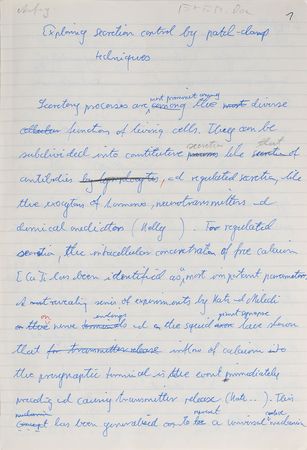 1
Exploring secretion control by patch-clamp
techniques
Secretory processes are among most prominent among the most diverse
function of living cells. They can be
subdivided into constitutive secretion like that of
antibodies by lymphocytes, and regulated secretion, like
the exocytosis of hormones, neurotransmitters and
chemical mediators (Kelly ). For regulated
secretion, the intracellular concentration of free calcium
[Ca] has been identified as a most important parameter.
A most revealing series of experiments by Katz and Miledi
on nerve terminals endings and on the squid giant synapse have shown
that for transmitter release inflow of calcium into
the presynaptic terminal is the event immediately
preceding and causing transmitter release (Katz ...). This
concept has been generalized to a universal